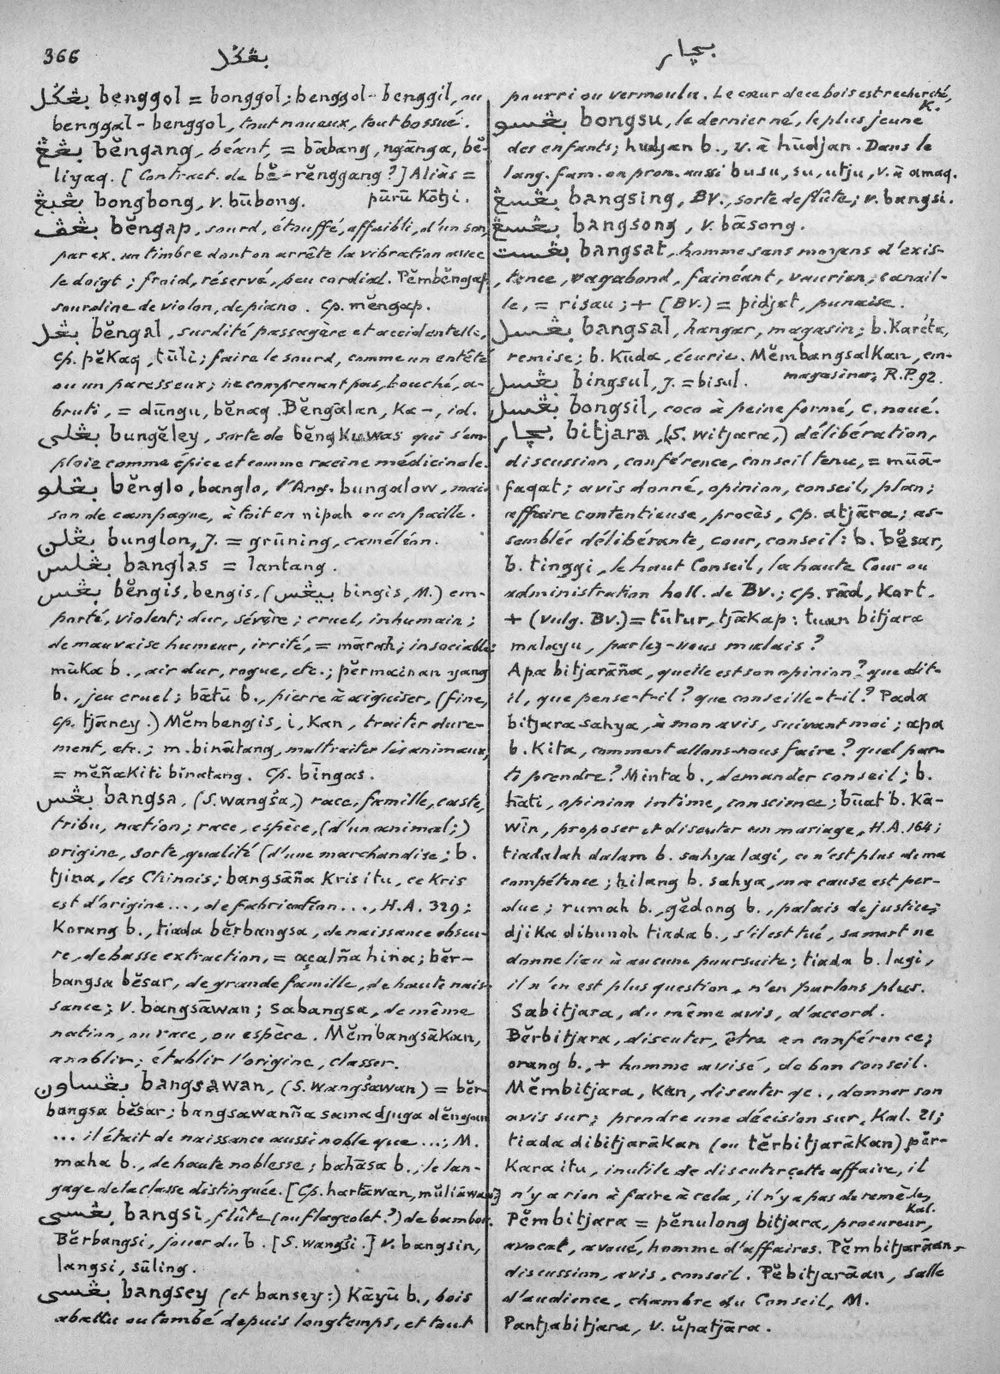 366
بڠݢل
بچارا
بڠݢل benggol = bonggol; benggol-benggil, ou
benggal-benggol, tout noueux, tout bossué.
بڠڠ bĕngang, béant, = bābang, ngānga, bĕ-
liyaq. [Contract. de bĕ-rĕnggang?] Aliàs =
بڠبڠ bongbong, v. būbong. pūrū Kōtji.
بڠڤ bĕngap, sourd, étouffé, affaibli, d'un son,
par ex. un timbre dont on arrête la vibration avec
le doigt; froid, réservé, peu cordial. Pĕmbĕngap
sourdine de violon, de piano. Cp. mĕngap.
بڠل bĕngal, surdité passagère et accidentelle,
Cp. pĕKaq, tūli; faire le sourd, comme un entêté
ou un paresseux; ne comprenant pas, bouché, a-
bruti, = dūngu, bĕnaq. Bĕngālan, Ka-, id.
بڠلى bungĕley, sorte de bĕngKuwas qui s'em-
ploie comme épice et comme racine médicinale.
بڠلو bĕnglo, banglo, l'Ang. bungalow, mai-
son de campagne, à toit en nipah ou en paille.
بڠلن bunglon, J. = grūning, caméléon.
بڠلس banglas = lantang.
بڠس bĕngis, bengis, (بيڠس bingis, M.) em-
porté, violent; dur, sévère; cruel, inhumain;
de mauvaise humeur, irrité, = mārah; insociable:
mūKa b., air dur, rogue, etc.; pĕrmainan yang
b., jeu cruel; bātū b., pierre à aiguiser, (fine,
Cp. tjāney.) Mĕmbengis, i, Kan, traiter dure-
ment, etc.; m. binātang, maltraiter les animaux,
= mĕñaKiti binatang. Cp. bīngas.
بڠس bangsa, (S. wangśa,) race, famille, caste,
tribu, nation; race, espèce, (d'un animal;)
origine, sorte, qualité (d'une marchandise; b.
tjina, les Chinois; bangsāña Kris itu, ce Kris
est d'origine..., de fabrication..., H.A. 329;
Korang b., tiada bĕrbangsa, de naissance obscu-
re, de basse extraction, = açalña hina; bĕr-
bangsa bĕsar, de grande famille, de haute nais-
sance; v. bangsāwan; sabangsa, de même
nation, ou race, ou espèce. MĕmbangsāKan,
anoblir; établir l'origine, classer.
بڠساون bangsawan, (S. wangśawan) = bĕr-
bangsa bĕsar; bangsawanña sama djuga dĕngan
... il était de naissance aussi noble que ..., M.
maha b., de haute noblesse; bahāsa b., le lan-
gage de la classe distinguée. [Cp. hartāwan, mūliāwan]
بڠسى bangsi, flûte (ou flageolet?) de bambou.
Bĕrbangsi, jouer du b. [S. wangśi.] v. bangsin,
langsi, sūling.
بڠسى bangsey (et bansey:) Kāyū b., bois
abattu ou tombé depuis longtemps, et tout
pourri ou vermoulu. Le cœur de ce bois est recherché,
K.
بڠسو bongsu, le dernier né, le plus jeune
des enfants; hudjan b., v. à hūdjan. Dans le
lang. fam. on pron. aussi busu, su, utju, v. à amaq.
بڠسڠ bangsing, BV., sorte de flûte; v. bangsi.
بڠسڠ bangsong, v. bāsong.
بڠست bangsat, homme sans moyens d'exis-
tence, vagabond, fainéant, vaurien, canail-
le, = risau; + (BV.) = pidjet, punaise.
بڠسل bangsal, hangar, magasin; b. Karéta,
remise; b. Kūda, écurie. MĕmbangsalKan, em-
magasiner, R.P. 92.
بڠسل bingsul, J. = bisul.
بڠسل bongsil, coco à peine formé, c. noué.
بچار bitjara, (S. witjara,) délibération,
discussion, conférence, conseil tenu, = mūā-
faqat; avis donné, opinion, conseil, plan;
affaire contentieuse, procès, Cp. atjāra; as-
semblée délibérante, cour, conseil: b. bĕsar,
b. tinggi, le haut Conseil, la haute Cour ou
administration holl. de BV.; Cp. rād, Kort.
+ (vulg. BV.) = tūtur, tjāKap: tuan bitjara
malayu, parlez-vous malais?
Apa bitjarāña, quelle est son opinion? que dit-
il, que pense-t-il? que conseille-t-il? Pada
bitjara sahya, à mon avis, suivant moi; apa
b. Kita, comment allons-nous faire? quel par-
ti prendre? Minta b., demander conseil; b.
hāti, opinion intime, conscience; būat b. Kā-
wīn, proposer et discuter un mariage, H.A. 164;
tiadalah dalam b. sahya lagi, ce n'est plus de ma
compétence; hilang b. sahya, ma cause est per-
due; rumah b., gĕdong b., palais de justice;
djiKa dibunoh tiada b., s'il est tué, sa mort ne
donne lieu à aucune poursuite; tiada b. lagi,
il n'en est plus question, n'en parlons plus.
Sabitjara, du même avis, d'accord.
Bĕrbitjara, discuter, être en conférence;
orang b., + homme avisé, de bon conseil.
Mĕmbitjara, Kan, discuter qc., donner son
avis sur; prendre une décision sur, Kal. 21;
tiada dibitjarāKan (ou tĕrbitjarāKan) pĕr-
Kara itu, inutile de discuter cette affaire, il
n'y a rien à faire à cela, il n'y a pas de remèdes,
Kal.
Pĕmbitjara = pĕnulong bitjara, procureur,
avocat, avoué, homme d'affaires. Pĕmbitjarāan,
discussion, avis, conseil. Pĕbitjarāan, salle
d'audience, chambre du Conseil, M.
Pantjabitjara, v. ŭpatjāra.